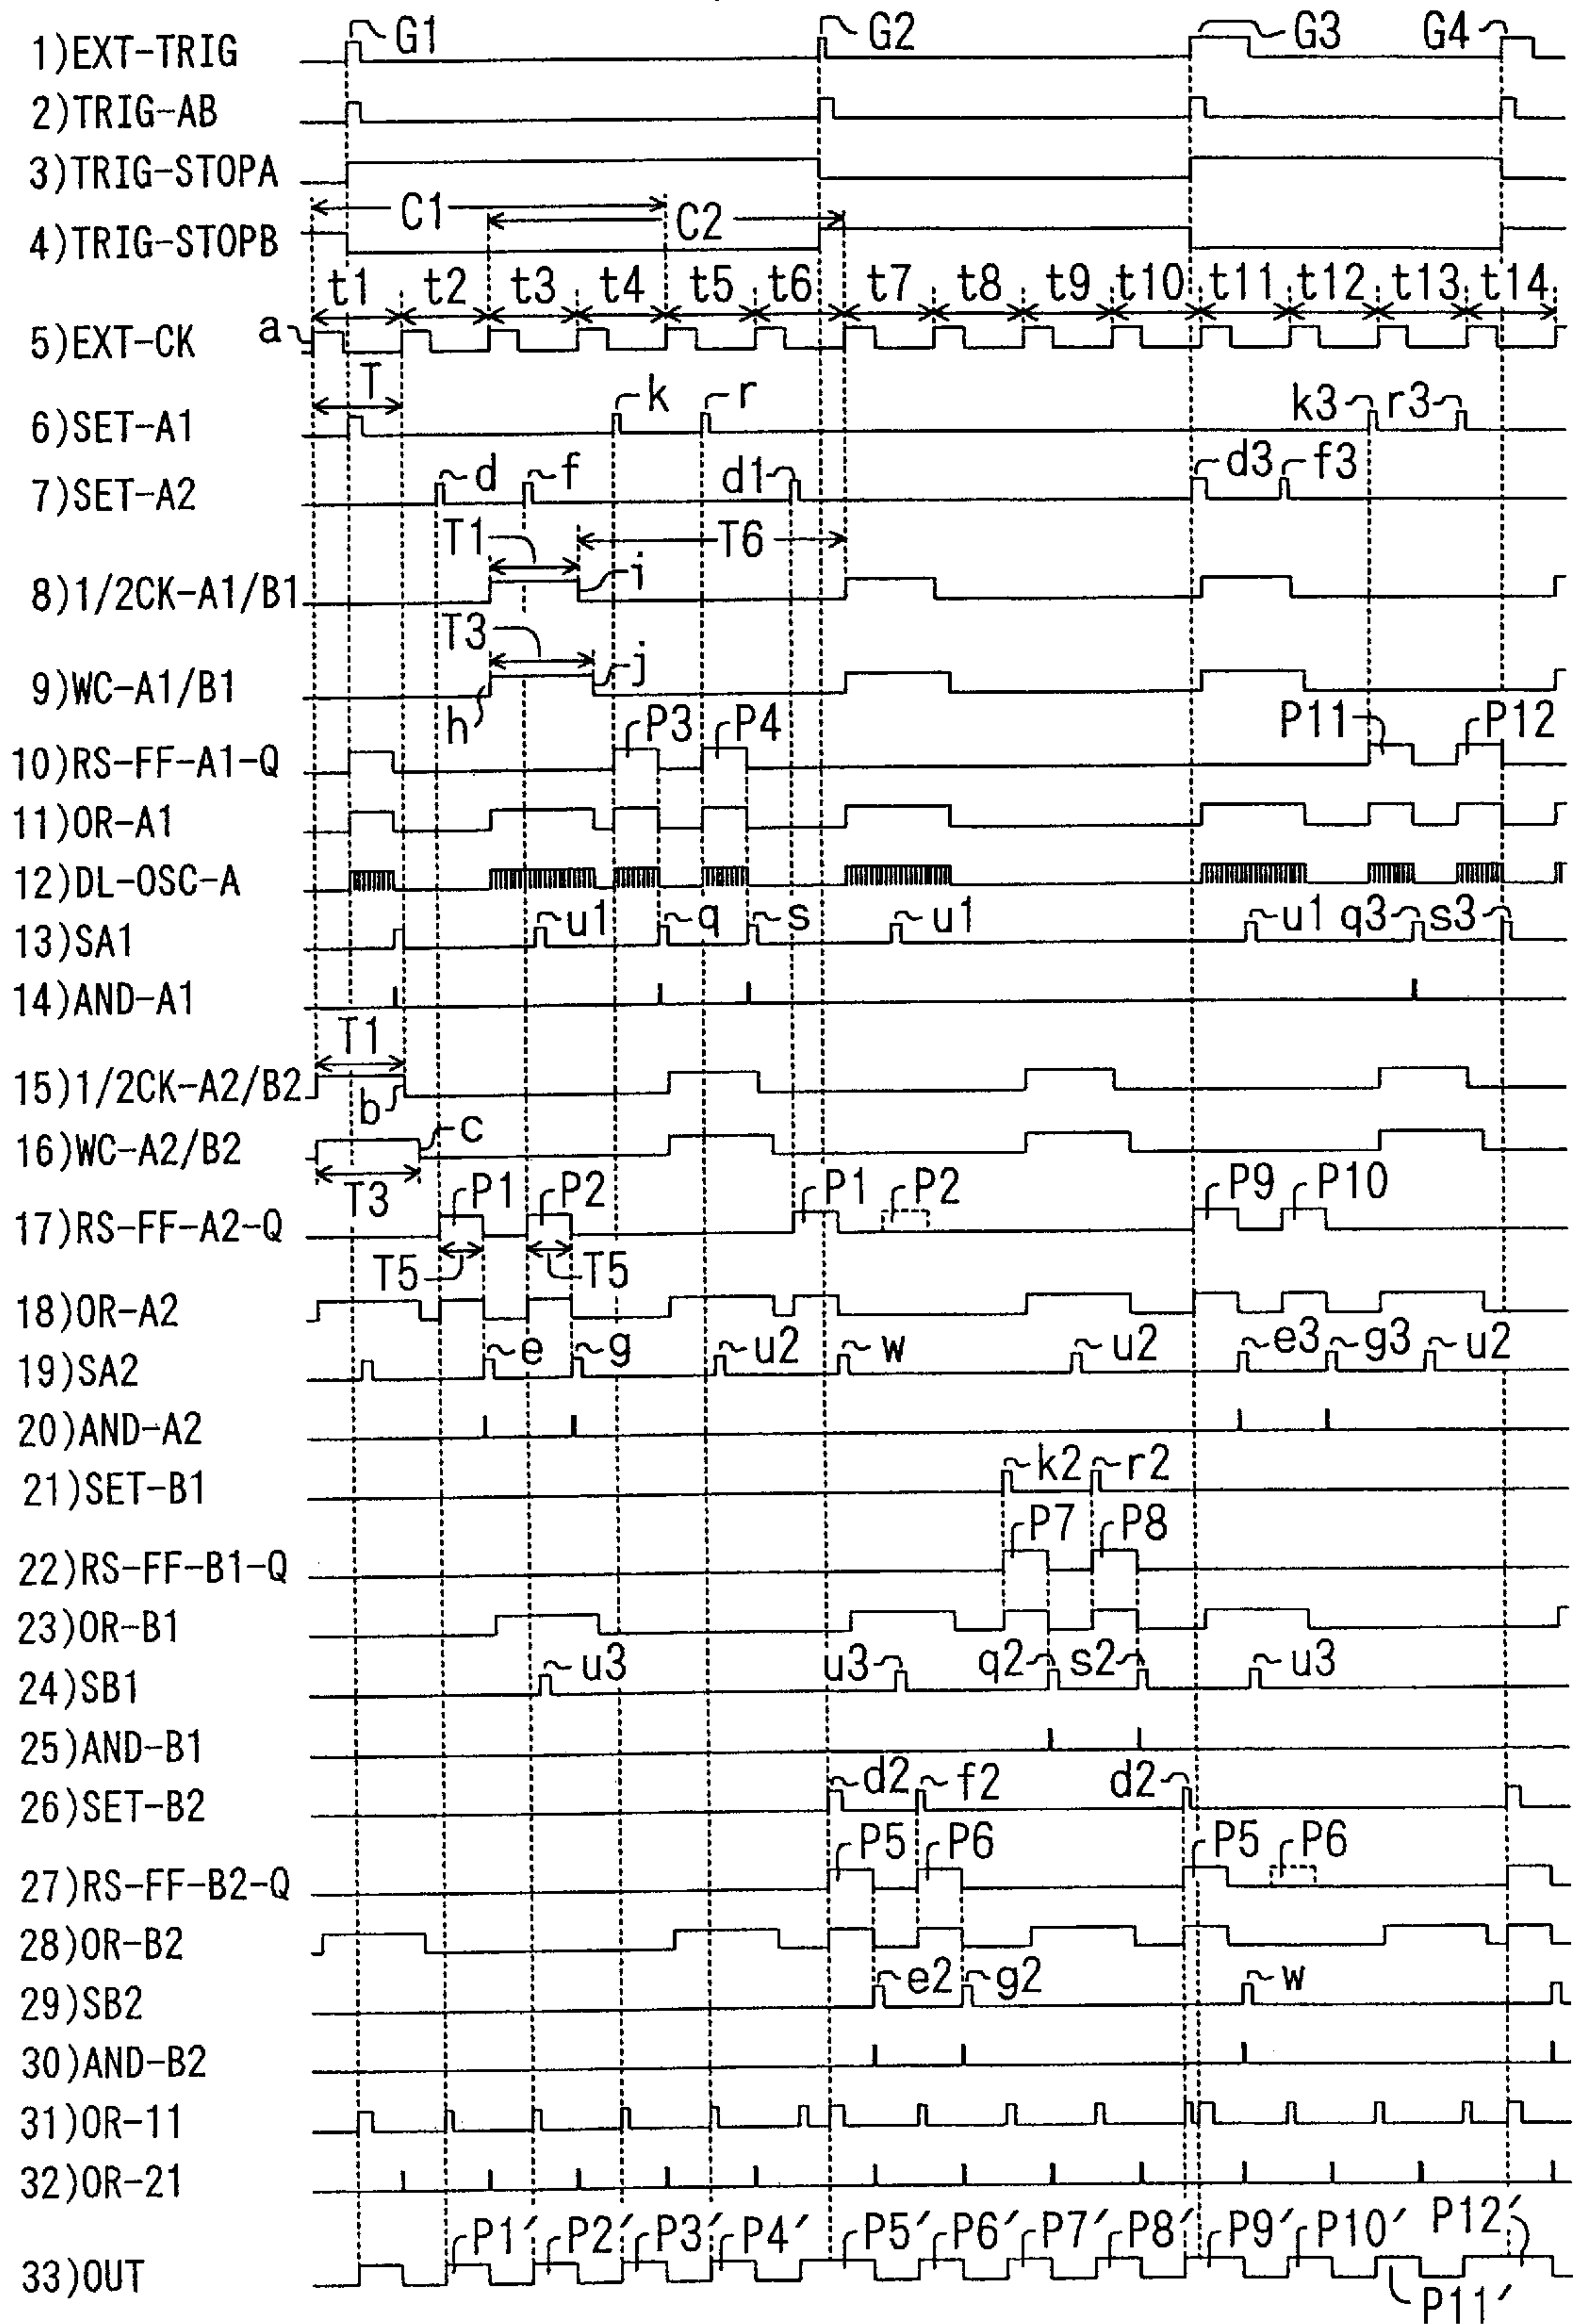 1)EXT-TRIG G1 G2 G3 G4
2)TRIG-AB
3)TRIG-STOPA
C1
4)TRIG-STOPB C2
t1 t2 t3 t4 t5 t6 t7 t8 t9 t10 t11 t12 t13 t14
5)EXT-CK a
T
6)SET-A1 k r k3 r3
7)SET-A2 d f d1 d3 f3
T1 T6
8)1/2CK-A1/B1 i
T3
9)WC-A1/B1 h j
10)RS-FF-A1-Q P3 P4 P11 P12
11)OR-A1
12)DL-OSC-A
13)SA1 u1 q s u1 u1 q3 s3
14)AND-A1
T1
15)1/2CK-A2/B2 b
16)WC-A2/B2 c
T3
17)RS-FF-A2-Q P1 P2 P1 P2 P9 P10
T5 T5
18)OR-A2
19)SA2 e g u2 w u2 e3 g3 u2
20)AND-A2
21)SET-B1 k2 r2
22)RS-FF-B1-Q P7 P8
23)OR-B1
24)SB1 u3 u3 q2 s2 u3
25)AND-B1
26)SET-B2 d2 f2 d2
27)RS-FF-B2-Q P5 P6 P5 P6
28)OR-B2
29)SB2 e2 g2 w
30)AND-B2
31)OR-11
32)OR-21
33)OUT P1′ P2′ P3′ P4′ P5′ P6′ P7′ P8′ P9′ P10′ P12′
P11′